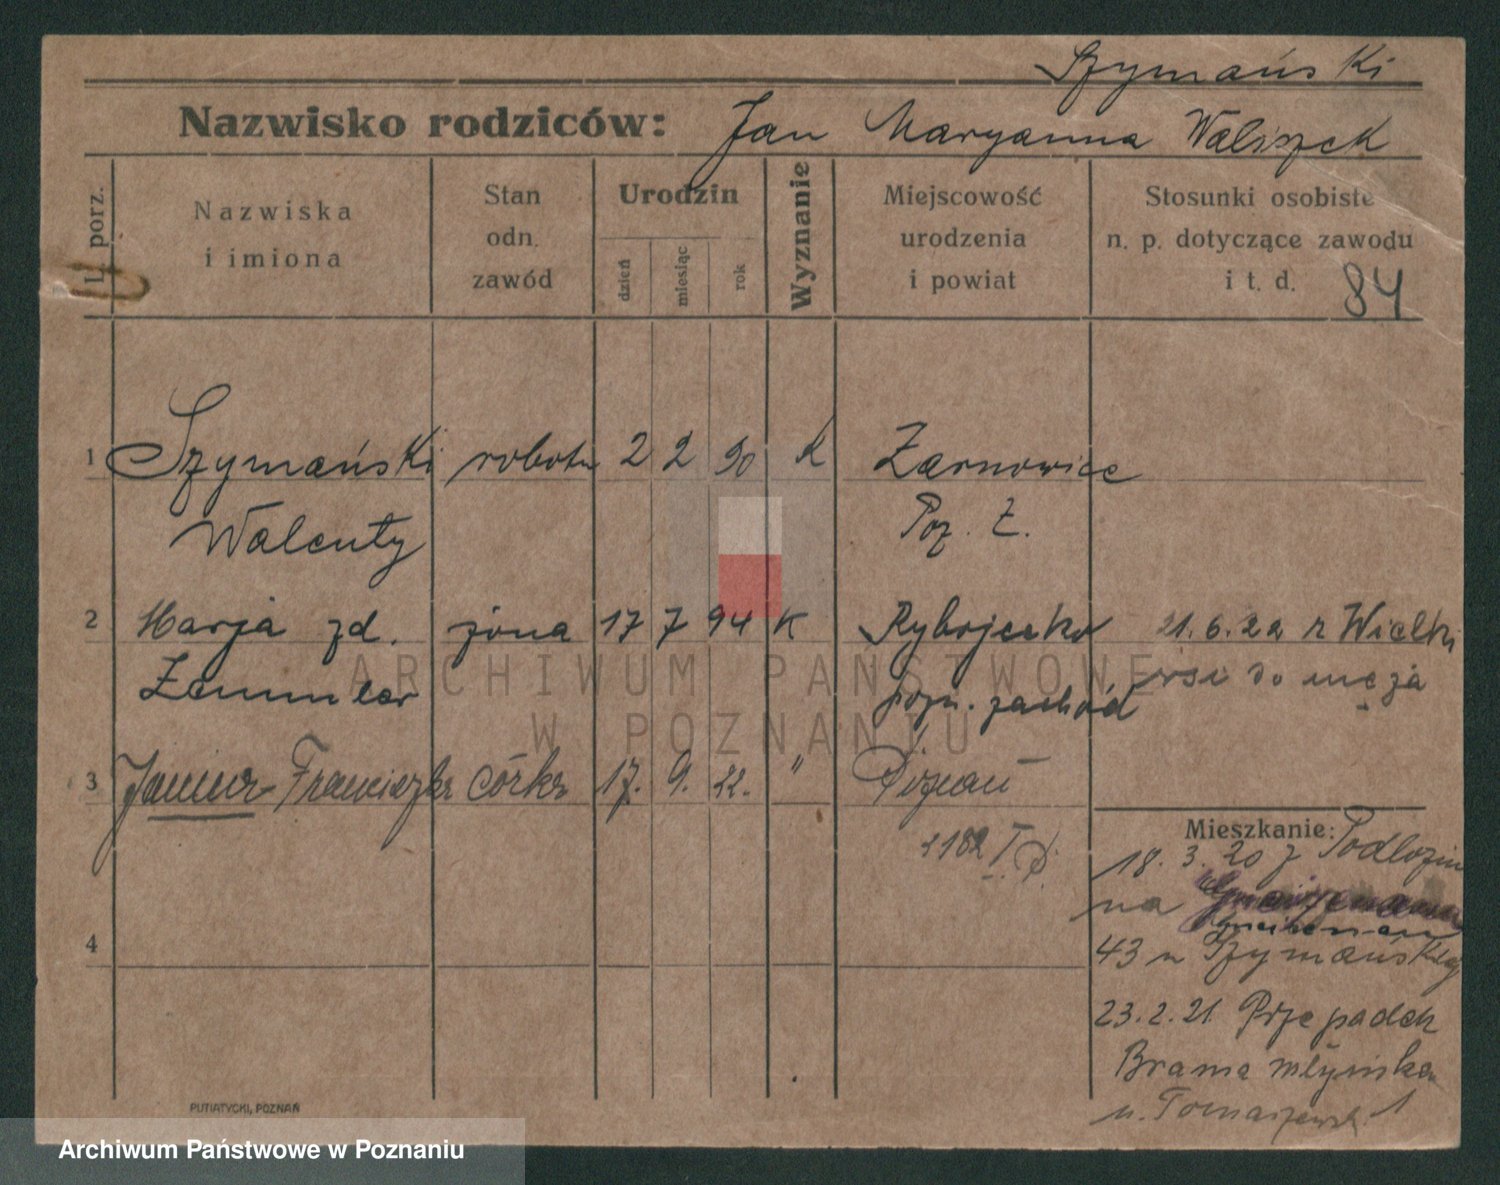 Szymański
Nazwisko rodziców: Jan Maryanna Waliszek
L. porz.
Nazwiska i imiona
Stan odn. zawód
Urodzin
dzień miesiąc rok
Wyznanie
Miejscowość urodzenia i powiat
Stosunki osobiste n. p. dotyczące zawodu i t. d.
84
1 Szymański robotn 2 2 90 k Żarnowiec
Walenty Poz. Z.
2 Marja zd. żona 17 7 94 K Rybojecko 21.6.22 z Wielki
pozn. zachód wsi do męża
3 Janina Franciszka córka 17. 9. 22. " Poznań
Mieszkanie:
18. 3. 20 z
na
43 u Szymańskiej
4
23.2.21. Przepadek
Brama młyńska 1
u. Tomaszewsk
PUTIATYCKI, POZNAŃ
ARCHIWUM PAŃSTWOWE
W POZNANIU
Archiwum Państwowe w Poznaniu